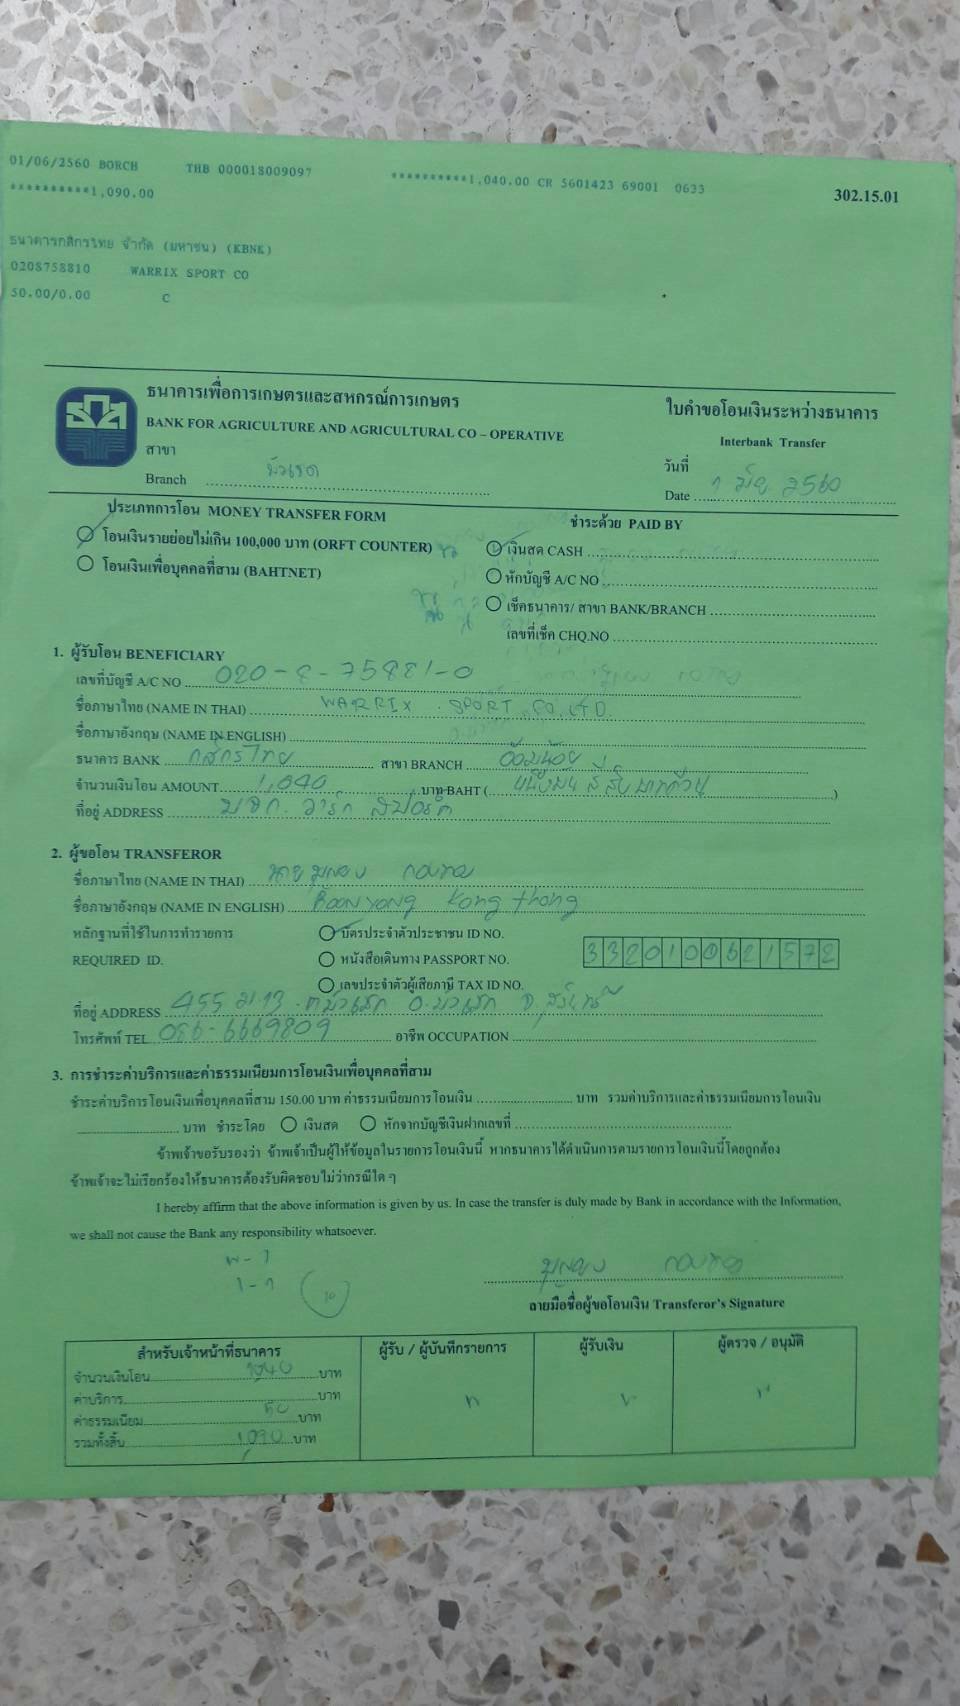 01/06/2560 BORCH THB 000018009097 **********1,040.00 CR 5601423 69001 0633
**********1,090.00
302.15.01
ธนาคารกสิกรไทย จำกัด (มหาชน) (KBNK)
0208758810 WARRIX SPORT CO
50.00/0.00 C
ธนาคารเพื่อการเกษตรและสหกรณ์การเกษตร
BANK FOR AGRICULTURE AND AGRICULTURAL CO – OPERATIVE
ใบคำขอโอนเงินระหว่างธนาคาร
Interbank Transfer
สาขา
Branch บัวเชด
วันที่
Date 1 มิย 2560
ประเภทการโอน MONEY TRANSFER FORM
ชำระด้วย PAID BY
โอนเงินรายย่อยไม่เกิน 100,000 บาท (ORFT COUNTER)
เงินสด CASH
โอนเงินเพื่อบุคคลที่สาม (BAHTNET)
หักบัญชี A/C NO
เช็คธนาคาร/ สาขา BANK/BRANCH
เลขที่เช็ค CHQ.NO
1. ผู้รับโอน BENEFICIARY
เลขที่บัญชี A/C NO 020-8-75881-0
ชื่อภาษาไทย (NAME IN THAI) WARRIX SPORT CO.,LTD.
ชื่อภาษาอังกฤษ (NAME IN ENGLISH)
ธนาคาร BANK กสิกรไทย สาขา BRANCH อ้อมน้อย
จำนวนเงินโอน AMOUNT 1,040 บาท BAHT (หนึ่งพันสี่สิบบาทถ้วน)
ที่อยู่ ADDRESS
2. ผู้ขอโอน TRANSFEROR
ชื่อภาษาไทย (NAME IN THAI) นาย บุญยง กองทอง
ชื่อภาษาอังกฤษ (NAME IN ENGLISH) Boonyong Kongthong
หลักฐานที่ใช้ในการทำรายการ บัตรประจำตัวประชาชน ID NO.
REQUIRED ID. หนังสือเดินทาง PASSPORT NO. 3320100621572
เลขประจำตัวผู้เสียภาษี TAX ID NO.
ที่อยู่ ADDRESS 455 ม.13 ต.บัวเชด อ.บัวเชด จ.สุรินทร์
โทรศัพท์ TEL 086-6669809 อาชีพ OCCUPATION
3. การชำระค่าบริการและค่าธรรมเนียมการโอนเงินเพื่อบุคคลที่สาม
ชำระค่าบริการโอนเงินเพื่อบุคคลที่สาม 150.00 บาท ค่าธรรมเนียมการโอนเงิน บาท รวมค่าบริการและค่าธรรมเนียมการโอนเงิน
บาท ชำระโดย เงินสด หักจากบัญชีเงินฝากเลขที่
ข้าพเจ้าขอรับรองว่า ข้าพเจ้าเป็นผู้ให้ข้อมูลในรายการโอนเงินนี้ หากธนาคารได้ดำเนินการตามรายการโอนเงินนี้โดยถูกต้อง
ข้าพเจ้าจะไม่เรียกร้องให้ธนาคารต้องรับผิดชอบไม่ว่ากรณีใด ๆ
I hereby affirm that the above information is given by us. In case the transfer is duly made by Bank in accordance with the Information,
we shall not cause the Bank any responsibility whatsoever.
บุญยง กองทอง
ลายมือชื่อผู้ขอโอนเงิน Transferor's Signature
สำหรับเจ้าหน้าที่ธนาคาร ผู้รับ / ผู้บันทึกรายการ ผู้รับเงิน ผู้ตรวจ / อนุมัติ
จำนวนเงินโอน 1040 บาท
ค่าบริการ บาท
ค่าธรรมเนียม 50 บาท
รวมทั้งสิ้น 1,090 บาท